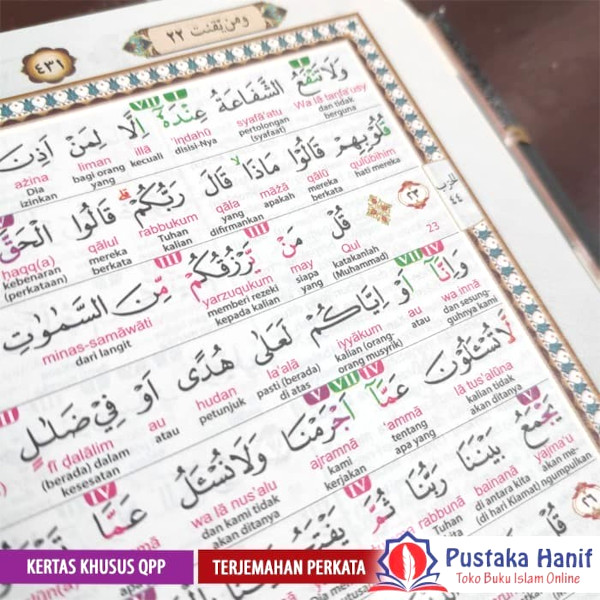 ومن يقنت ٢٢
٤٣١
VII
وَلَا تَنْفَعُ الشَّفَاعَةُ عِنْدَهٗٓ اِلَّا لِمَنْ اَذِنَ
Wa lā tanfa'usy syafā'atu 'indahū illā liman ažina
dan tidak berguna pertolongan (syafaat) disisi-Nya kecuali bagi orang yang Dia izinkan
قُلُوْبِهِمْ قَالُوْا مَاذَا قَالَ رَبُّكُمْ قَالُوا الْحَقَّ
qulūbihim qālū māžā qāla rabbukum qālul haqq(a)
hati mereka mereka berkata apakah yang difirmankan Tuhan kalian mereka berkata kebenaran (perkataan)
٢٣
الحزب ٤٤
III III V
قُلْ مَنْ يَّرْزُقُكُمْ مِّنَ السَّمٰوٰتِ
23 Qul may yarzuqukum minas-samāwāti
katakanlah (Muhammad) siapa yang memberi rezeki kepada kalian dari langit
VII IV
وَاِنَّآ اَوْ اِيَّاكُمْ لَعَلٰى هُدًى اَوْ فِيْ ضَلٰلٍ
wa innā au iyyākum la'alā hudan au fī ḍalālim
dan sesungguhnya kami atau kalian (orang-orang musyrik) pasti (berada) di atas petunjuk atau (berada) dalam kesesatan
V VII IV III
لَّا تُسْـَٔلُوْنَ عَمَّآ اَجْرَمْنَا وَلَا نُسْـَٔلُ عَمَّا
lā tus'alūna 'ammā ajramnā wa lā nus'alu
kalian tidak akan ditanya tentang apa yang kami kerjakan dan kami tidak akan ditanya
V IV IV
يَجْمَعُ بَيْنَنَا رَبُّنَا ثُمَّ
yajma'u bainanā rabbunā
akan mengumpulkan (di hari Kiamat) di antara kita Tuhan
٢٦
قُلْ
KERTAS KHUSUS QPP
TERJEMAHAN PERKATA
Pustaka Hanif
Toko Buku Islam Online